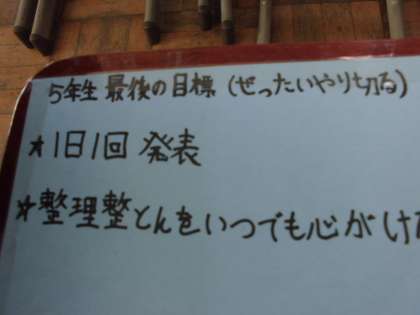 5年生 最後の目標 (ぜったいやり切る)
★1日1回 発表
★整理整とんをいつでも心がけ